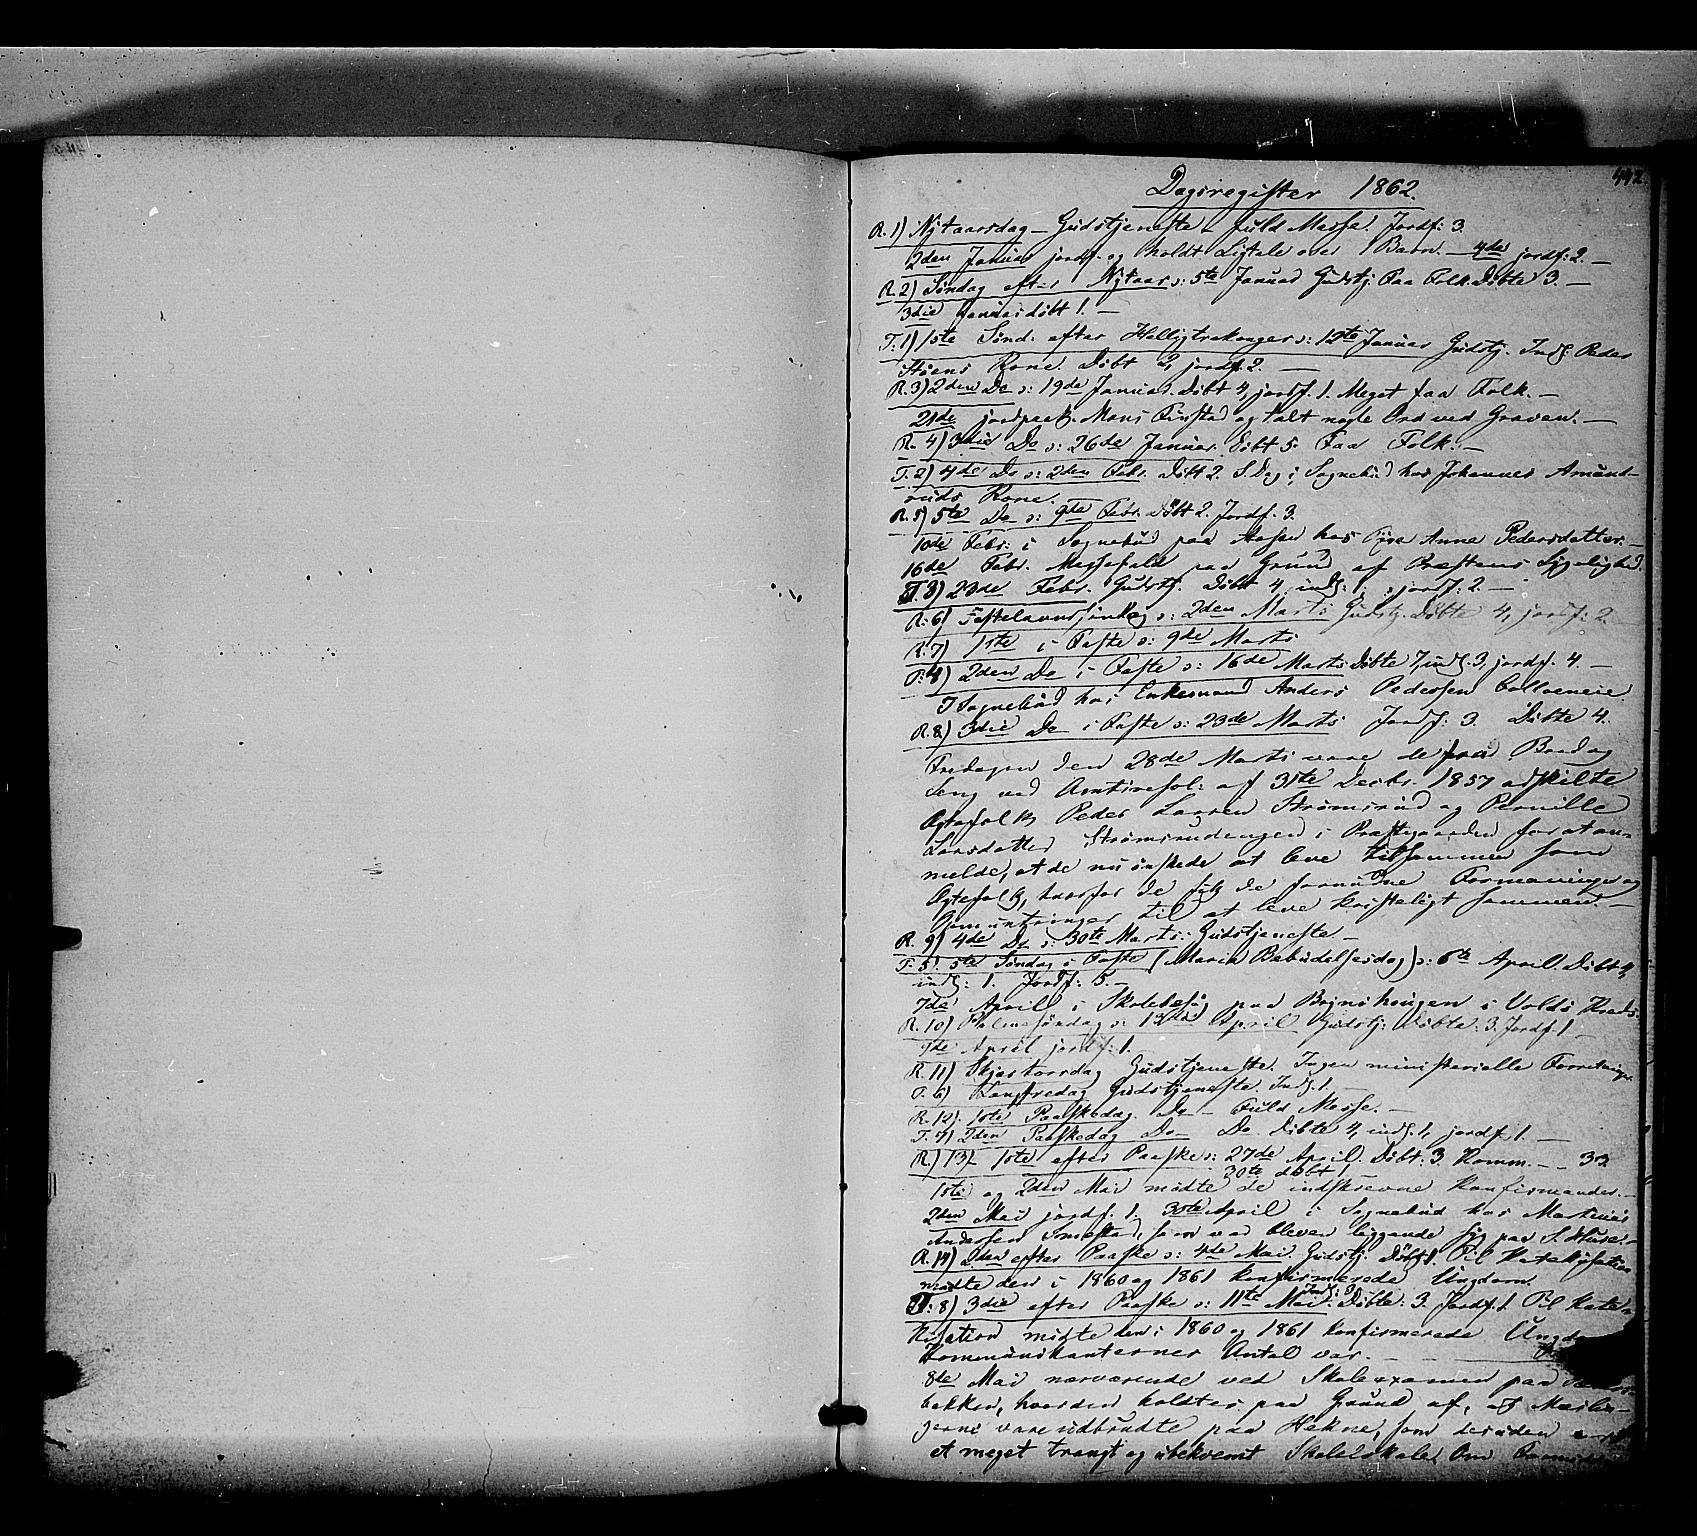 442.
Dagsregister 1862.
R. 1) Nytaarsdag – Gudstjeneste – fuld Messe. Jordf: 3.
2den Januar jordf. og holdt Ligtale over 1 Barn. – 4de jordf: 2. –
R. 2) Søndag efter Nytaar ɔ: 5te Januar Gudstj. Faa Folk. Døbte 3. –
3die Januar døbt 1. –
T: 1) 1ste Sønd: efter Helligtrekonger ɔ: 12te Januar Gudstj. Indl: Peder
Kone. Døbt 2, jordf. 2. –
R. 3) 2den Do ɔ: 19de Januar. Døbt 4, jordf. 1. Meget faa Folk. –
21de jordpaak. Mons Finstad og talt nogle Ord ved Graven. –
R. 4) 3die Do ɔ: 26de Januar. Døbt 5. Faa Folk. –
T. 2) 4de Do ɔ: 2den Febr. Døbt 2. S. Dag i Sognebud hos Johannes Amund-
ruds Kone.
R. 5) 5te Do ɔ: 9de Febr. Døbt 2. Jordf. 3.
10de Febr: i Sognebud paa hos Anne Pedersdatter. –
16de Febr. Messefald paa Grund af Præstens Sygelighed.
T. 3) 23de Febr. Gudstj. Døbt 4, indl: 1, jordf: 2. –
R. 6) Fastelavnssøndag ɔ: 2den Marts Gudstj. Døbte 4, jordf: 2.
R. 7) 1ste i Faste ɔ: 9de Marts
T. 4) 2den Do i Faste ɔ: 16de Marts Døbte 7, indl: 3, jordf. 4. –
I Sognebud hos Enkemand Anders Pedersen
R. 8) 3die Do i Faste ɔ: 23de Marts Jordf: 3. Døbte 4.
Fredagen den 28de Marts vare de fra Bord og
Seng ved Amtsresol: af 31te Decbr. 1857 adskilte
Ægtefolk Peder Larsen Strømsrud og Pernille
Larsdatter Strømsrudengen i Præstegaarden for at an-
melde, at de nu ønskede at leve tilsammen som
Ægtefolk, hvorfor de fik de fornødne Formaninger og
Opmuntringer til at leve kristeligt sammen. –
R. 9) 4de Do ɔ: 30te Marts: Gudstjeneste –
T. 5) 5te Søndag i Faste (Mariæ Bebudelsesdag) ɔ: 6te April. Døbt 4,
indl: 1. Jordf: 5. –
7de April i Skolebesøg paa i Volds Kreds.
R. 10) Palmesøndag ɔ: 13de April Gudstj: Døbte: 3. Jordf. 1 –
9de April jordf: 1. –
R. 11) Skjærtorsdag Gudstjeneste. Ingen ministerielle Forretninger.
T. 6) Langfredag Gudstjeneste. Indl. 1. –
R. 12) 1ste Paaskedag. Do – Fuld Messe. –
T. 7) 2den Paaskedag Do – Do Døbte 4, indl. 1, jordf. 1. –
R. 13) 1ste efter Paaske ɔ: 27de April. Døbt: 3. Komm. – – 33.
30te døbt 1
1ste og 2den Mai mødte de indskrevne Konfirmander. –
2den Mai jordf. 1. 30te April i Sognebud hos Martinus
Andersen Smestad, som var bleven liggende syg paa
R. 14) 2den efter Paaske ɔ: 4de Mai. Gudstj. Døbt 1. Til Katekisation
mødte den i 1860 og 1861 konfirmerede Ungdom.
Indl: 3
T: 8) 3die efter Paaske ɔ: 11te Mai. Døbte: 3. Jordf. 1. Til Kate-
kisation mødte den i 1860 og 1861 konfirmerede
Kommunikanternes Antal var. –
8de Mai nærværende ved Skoleexamen paa
bakken, hvor den holdtes paa Grund af, at Mæslin-
gerne vare udbrudte paa Hekne, som desuden
et meget trangt og ubekvemt Skolelokale. Om